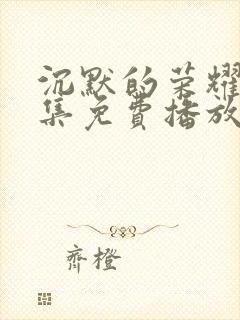 沉默的荣耀
集免费播放
齐橙